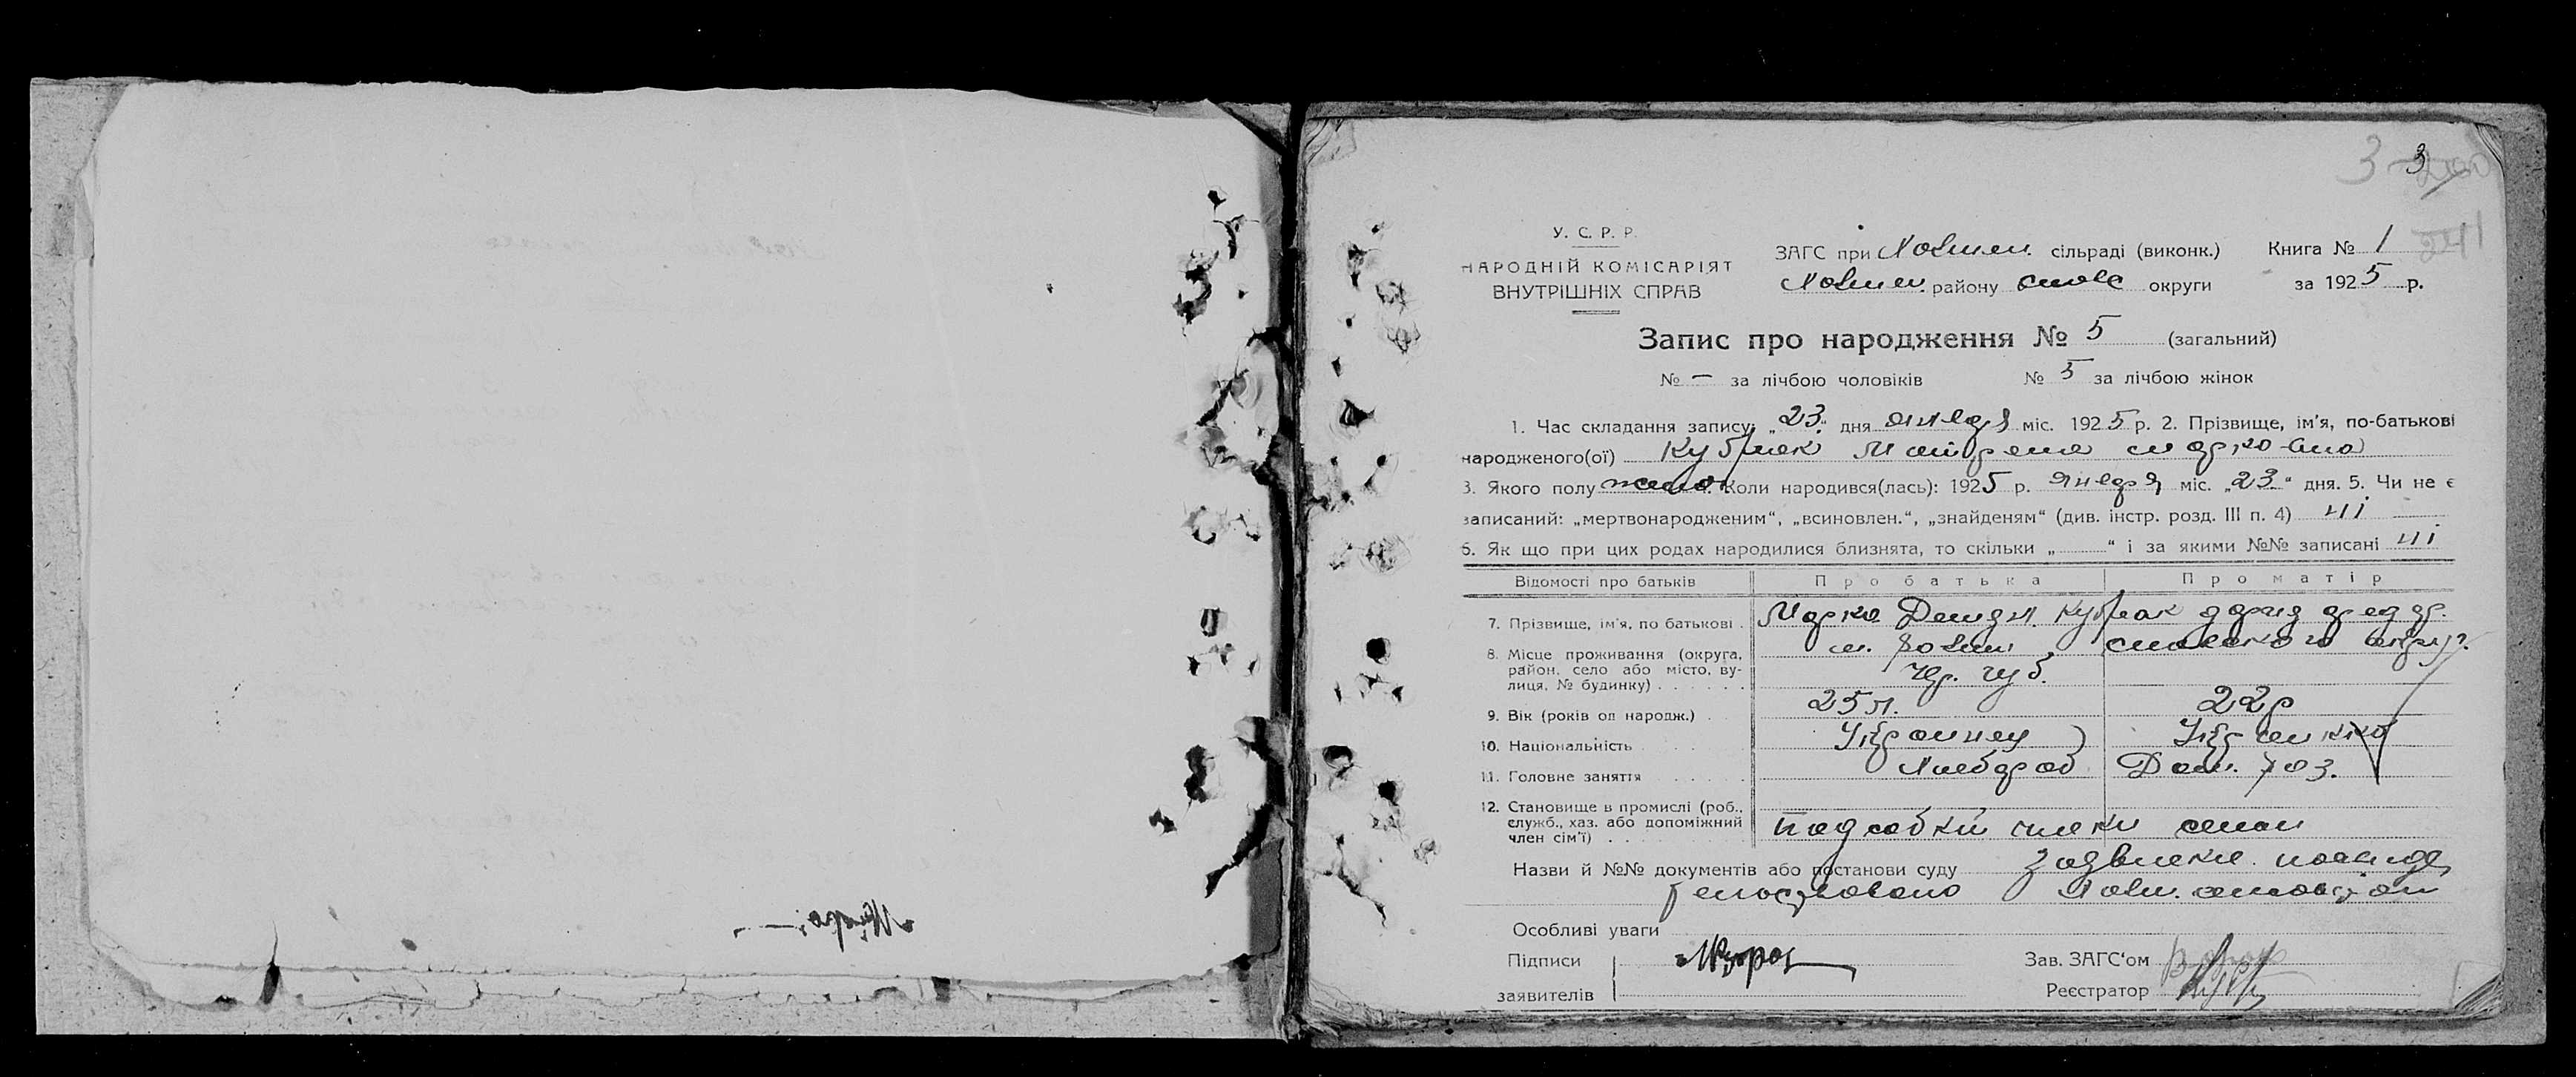 3
У. С. Р. Р.
НАРОДНІЙ КОМІСАРІЯТ
ВНУТРІШНІХ СПРАВ
ЗАГС при Холмен. сільраді (виконк.) Книга № 1
Холмен. району округи за 1925 р.
Запис про народження № 5 (загальний)
№ — за лічбою чоловіків № 5 за лічбою жінок
1. Час складання запису: „23“ дня января міс. 1925 р. 2. Прізвище, ім'я, по-батькові
народженого(ої) Кубрак Мотрена Марковна
3. Якого полу жено 4. Коли народився(лась): 1925 р. января міс. „23“ дня. 5. Чи не є
записаний: „мертвонародженим“, „всиновлен.“, „знайденям“ (див. інстр. розд. III п. 4) ні
6. Як що при цих родах народилися близнята, то скільки „ “ і за якими №№ записані ні
Відомості про батьків Про батька Про матір
7. Прізвище, ім'я, по батькові . Марко Демян. Кубрак
8. Місце проживання (округа, район, село або місто, вулиця, № будинку) . . . . . . м. Холми округ.
Чер. губ.
9. Вік (років од народж.) . 25 л. 22 р
10. Національність Українец Українка
11. Головне заняття Хлебороб Дом. хоз.
12. Становище в промислі (роб., служб., хаз. або допоміжний член сім'ї) . члени семьи
Назви й №№ документів або постанови суду
Особливі уваги
Підписи
заявителів
Зав. ЗАГС'ом
Реєстратор